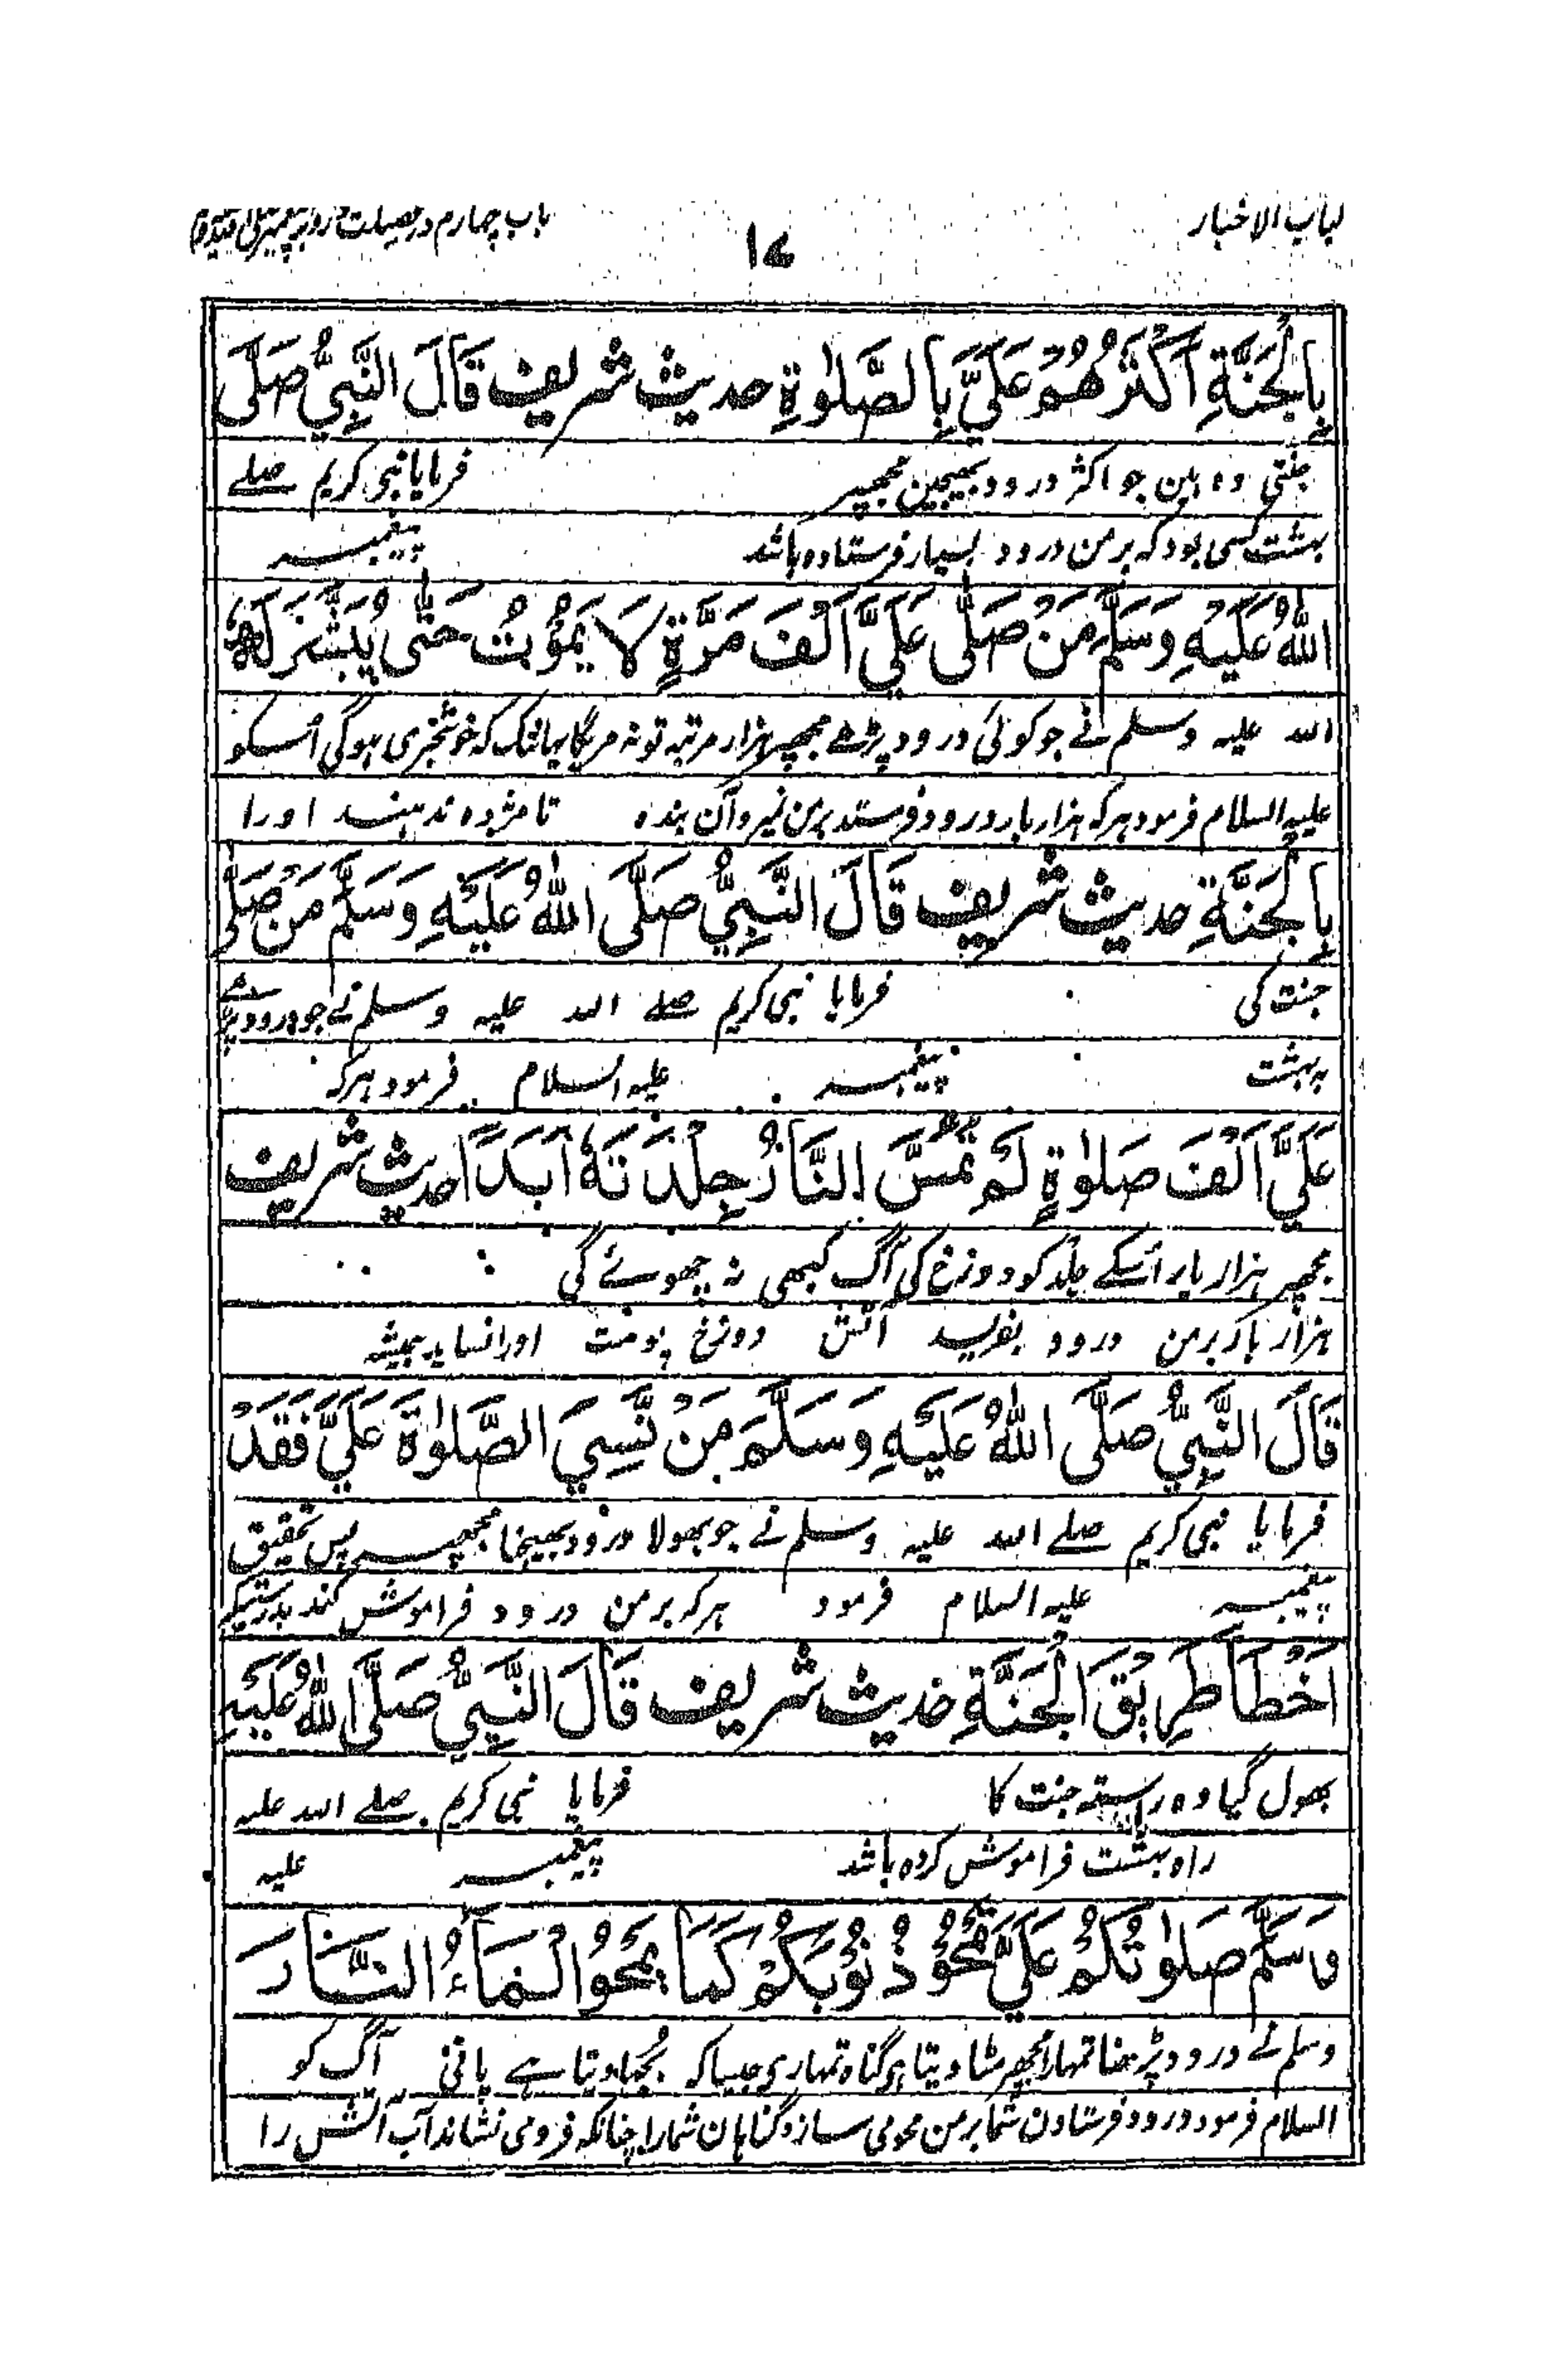 لباب الاخبار
۱۷
باب چہارم در فضیلت درود بر پیمبر
بِالْجَنَّةِ اَكْثَرُهُمْ عَلَيَّ بِالصَّلٰوةِ حدیث شریف قَالَ النَّبِيُّ صَلَّى
جنتی وہ ہین جو اکثر درود بھیجین مجھپر فرمایا نبی کریم صلے
بہشت کسی بود کہ بر من درود بسیار فرستادہ باشد پیغمبر
اللّٰهُ عَلَيْهِ وَسَلَّمَ مَنْ صَلّٰى عَلَيَّ اَلْفَ مَرَّةٍ لَا يَمُوْتُ حَتّٰى يُبَشَّرَ لَهٗ
اللہ علیہ وسلم نے جو کوئی درود پڑھے مجھپر ہزار مرتبہ تو نہ مریگا یہانتک کہ خوشخبری ہوگی اُسکو
علیہ السلام فرمود ہر کہ ہزار بار درود فرستد بر من نمیرد آن بندہ تا مژدہ ندہند اورا
بِالْجَنَّةِ حدیث شریف قَالَ النَّبِيُّ صَلَّى اللّٰهُ عَلَيْهِ وَسَلَّمَ مَنْ صَلّٰى
جنت کی فرمایا نبی کریم صلے اللہ علیہ وسلم نے جو درود پڑھے
بہ بہشت پیغمبر علیہ السلام فرمود ہر کہ
عَلَيَّ اَلْفَ صَلٰوةٍ لَمْ تَمَسَّ النَّارُ جِلْدَتَهٗ اَبَدًا حدیث شریف
مجھپر ہزار بار اُسکے جلد کو دوزخ کی آگ کبھی نہ چھوئے گی
ہزار بار بر من درود بفرستد آتش دوزخ پوست اورا نساید ہمیشہ
قَالَ النَّبِيُّ صَلَّى اللّٰهُ عَلَيْهِ وَسَلَّمَ مَنْ نَّسِيَ الصَّلٰوةَ عَلَيَّ فَقَدْ
فرمایا نبی کریم صلے اللہ علیہ وسلم نے جو بھولا درود بھیجنا مجھپر پس تحقیق
پیغمبر علیہ السلام فرمود ہر کہ بر من درود فراموش کند بدرستیکہ
اَخْطَأَ طَرِيْقَ الْجَنَّةِ حدیث شریف قَالَ النَّبِيُّ صَلَّى اللّٰهُ عَلَيْهِ
بھول گیا وہ رستہ جنت کا فرمایا نبی کریم صلے اللہ علیہ
راہ بہشت فراموش کردہ باشد پیغمبر علیہ
وَسَلَّمَ صَلٰوتُكُمْ عَلَيَّ تَمْحُوْ ذُنُوْبَكُمْ كَمَا يَمْحُو الْمَآءُ النَّارَ
وسلم نے درود پڑہنا تمہارا مجھپر مٹا دیتا ہی گناہ تمہاری جیسا کہ بُجھا دیتا ہے پانی آگ کو
السلام فرمود درود فرستادن شما بر من محو می سازد گناہان شما را چنانکہ فرو می نشاند آب آتش را